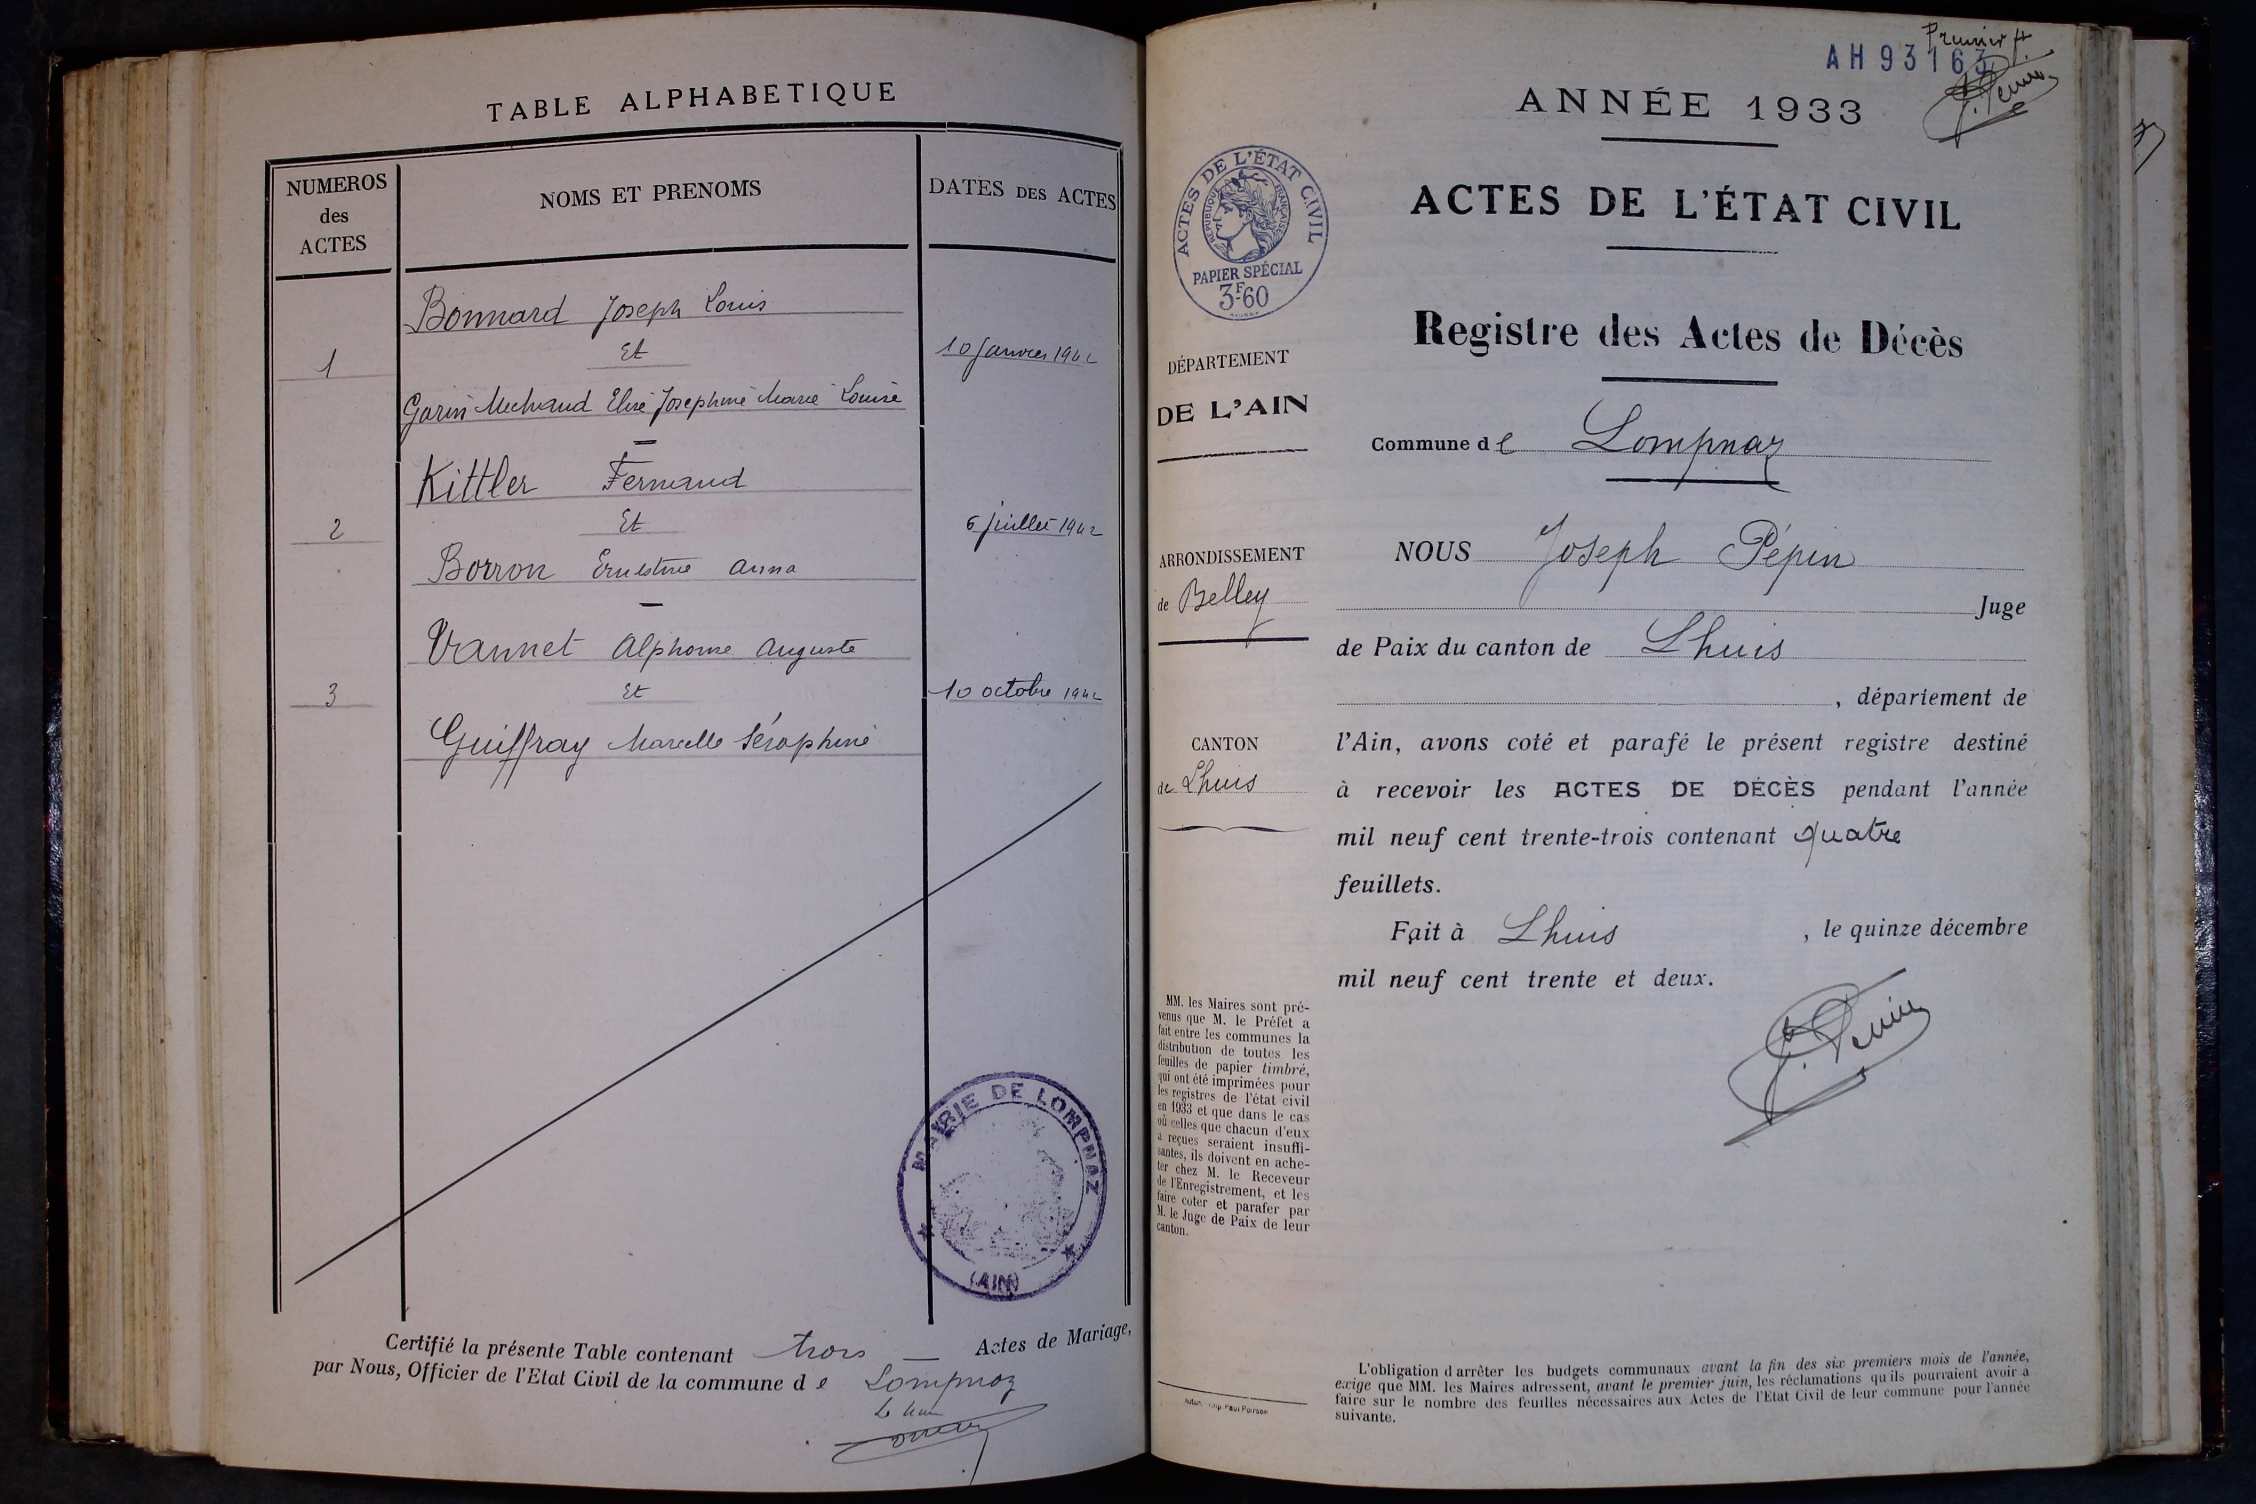 TABLE ALPHABETIQUE
NUMEROS
des
ACTES
NOMS ET PRENOMS
DATES DES ACTES
Bonnard Joseph Louis
1
Et
10 janvier 1942
Garin Michaud Elise Josephine Marie Louise
Kittler Fernand
2
Et
6 juillet 1942
Borron Ernestine Anna
Vannet Alphonse Auguste
3
Et
10 octobre 1942
Guiffray Marcelle Séraphine
MAIRIE DE LOMPNAZ
(AIN)
Certifié la présente Table contenant trois — Actes de Mariage,
par Nous, Officier de l'Etat Civil de la commune de Lompnaz
Premier f.
AH93163
ANNÉE 1933
ACTES DE L'ÉTAT CIVIL
RÉPUBLIQUE FRANÇAISE
PAPIER SPÉCIAL
3F.60
ACTES DE L'ÉTAT CIVIL
Registre des Actes de Décès
DÉPARTEMENT
DE L'AIN
Commune de Lompnaz
ARRONDISSEMENT
de Belley
CANTON
de Lhuis
NOUS Joseph Pépin
Juge
de Paix du canton de Lhuis
, département de
l'Ain, avons coté et parafé le présent registre destiné
à recevoir les ACTES DE DÉCÈS pendant l'année
mil neuf cent trente-trois contenant quatre
feuillets.
Fait à Lhuis , le quinze décembre
mil neuf cent trente et deux.
MM. les Maires sont pré-
venus que M. le Préfet a
fait entre les communes la
distribution de toutes les
feuilles de papier timbré,
qui ont été imprimées pour
les registres de l'état civil
en 1933 et que dans le cas
où celles que chacun d'eux
a reçues seraient insuffi-
santes, ils doivent en ache-
ter chez M. le Receveur
de l'Enregistrement, et les
faire coter et parafer par
M. le Juge de Paix de leur
canton.
L'obligation d'arrêter les budgets communaux avant la fin des six premiers mois de l'année,
exige que MM. les Maires adressent, avant le premier juin, les réclamations qu'ils pourraient avoir à
faire sur le nombre des feuilles nécessaires aux Actes de l'Etat Civil de leur commune pour l'année
suivante.